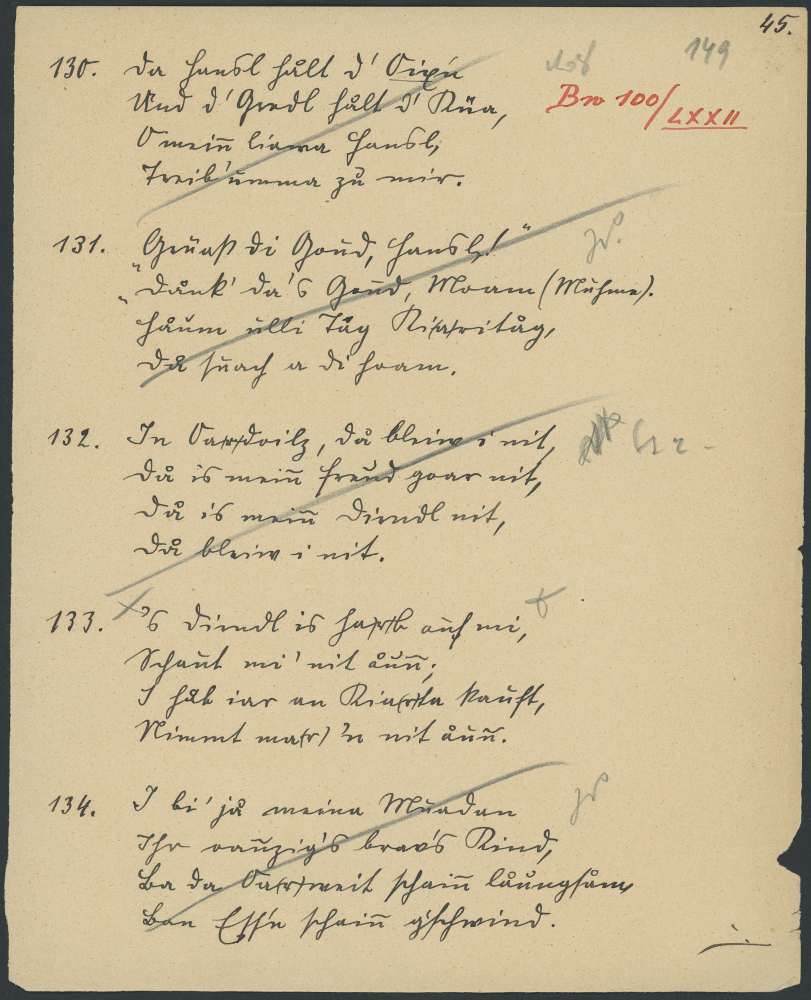 45.
149
Bw 100/LXXII
130. Da Hansl hålt d' Oix'n
Und d' Gredl hålt d' Küa,
O mein̄ liawa Hansl,
Treib' umma zu mir.
131. "Grüaß di Goud, Hansl!"
"Dånk' da's Goud, Moam (Muhme).
Håum ulli Tåg Ki(a)ritåg,
Då suach a di hoam.
132. In Oa(r)doilz, då bleiw i nit,
Då is mein̄ Freud goar nit,
Då is mein̄ Diendl nit,
Då bleiw i nit.
133. 's Diendl is ha(r)b auf mi,
Schaut mi' nit åun̄;
I håb iar an Kia(r)ta kauft,
Nimmt ma(r) 'n nit åun̄.
134. I bi' jå meina Muadan
Ihr oanzig's brav's Kind,
Ba da Oa(r)weit schain̄ låungsåm,
Ban Ess'n schain̄ g'schwind.